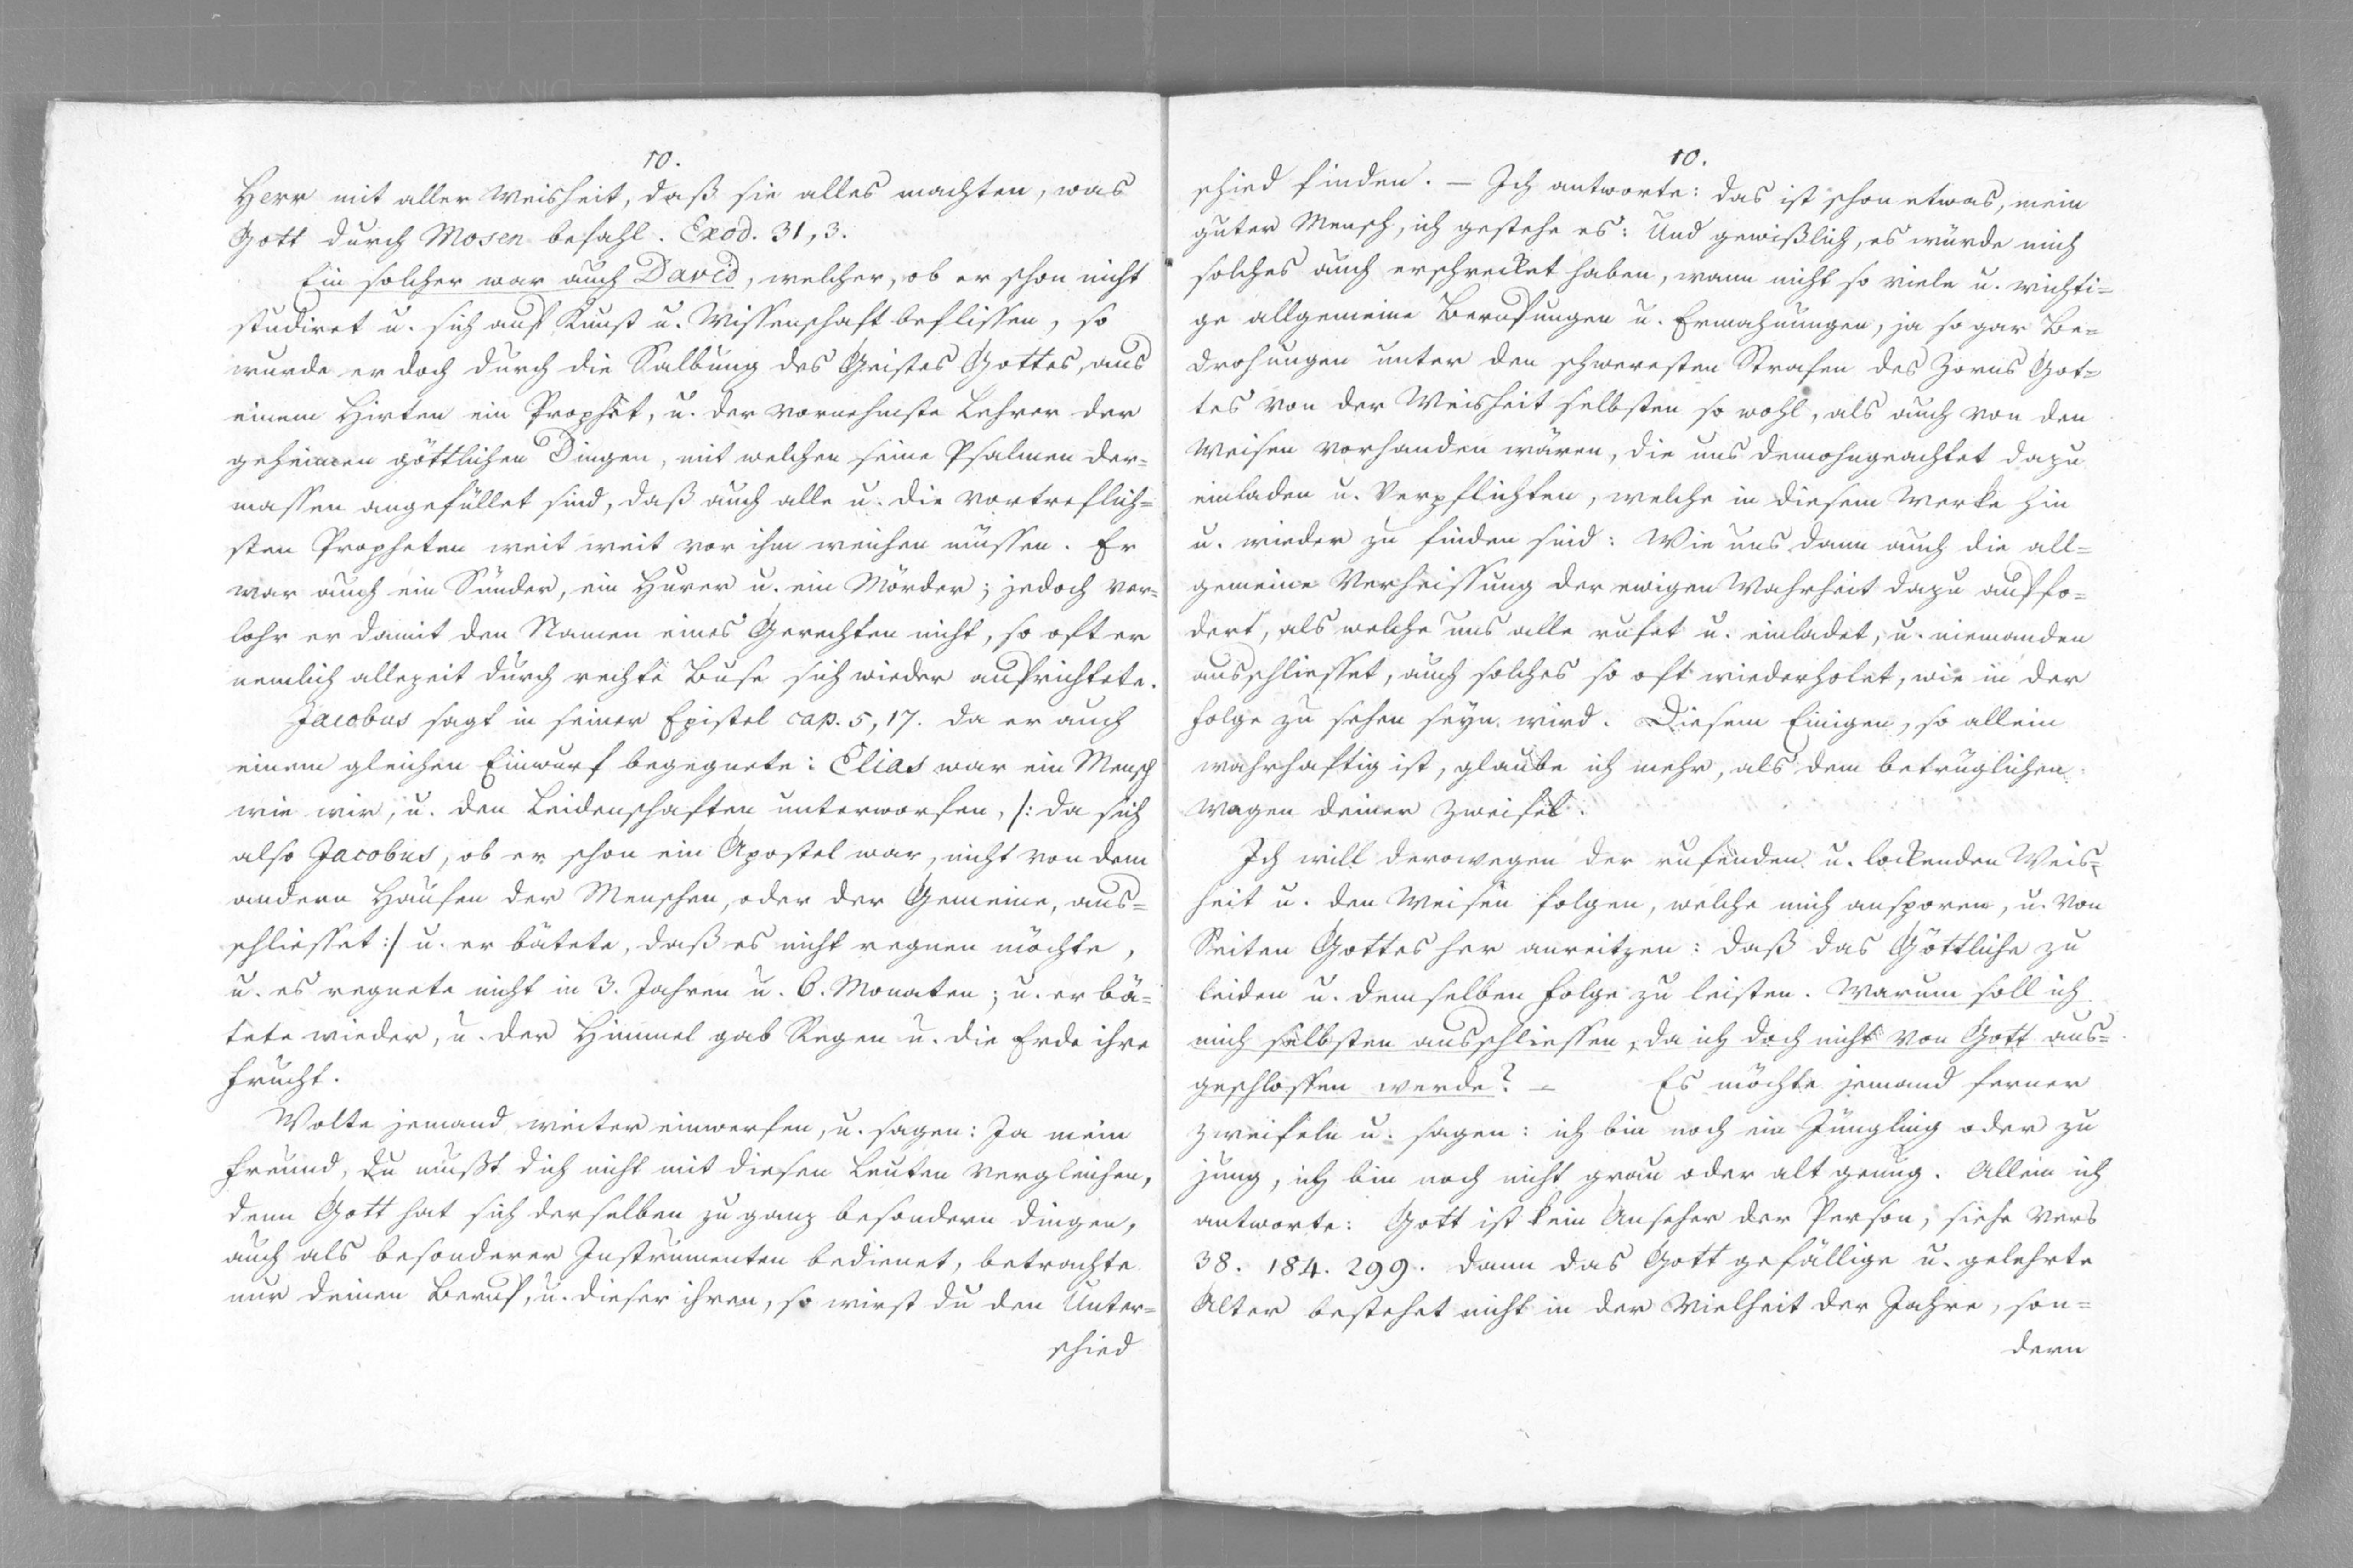 10.
Herr mit aller Weisheit, daß sie alles machten, was
Gott durch Mosen befahl. Exod. 31, 3.
Ein solcher war auch David, welcher, ob er schon nicht
studiret u. sich auf Kunst u. Wissenschaft beflissen, so
wurde er doch durch die Salbung des Geistes Gottes, aus
einem Hirten ein Prophet, u. der vornehmste Lehrer der
geheimen göttlichen Dingen, mit welchen seine Psalmen der=
massen angefüllet sind, daß auch alle u. die vortreflich=
sten Propheten weit weit vor ihm weichen müssen. Er
war auch ein Sünder, ein Hurer u. ein Mörder; jedoch ver=
lohr er damit den Namen eines Gerechten nicht, so oft er
nemlich allezeit durch rechte Buse sich wieder aufrichtete.
Jacobus sagt in seiner Epistel cap. 5, 17. da er auch
einem gleichen Einwurf begegnete: Elias war ein Mensch
wie wir, u. den Leidenschaften unterworfen, /: da sich
also Jacobus, ob er schon ein Apostel war, nicht von dem
andern Haufen der Menschen, oder der Gemeine, aus=
schliesset :/ u. er bätete, daß es nicht regnen möchte,
u. es regnete nicht in 3. Jahren u. 6. Monaten; u. er bä=
tete wieder, u. der Himmel gab Regen u. die Erde ihre
Frucht.
Wolte jemand weiter einwerfen, u. sagen: Ja mein
Freund, du mußt dich nicht mit diesen Leuten vergleichen,
denn Gott hat sich derselben zu ganz besondern Dingen,
auch als besonderer Instrumenten bedienet, betrachte
nur deinen Beruf, u. dieser ihren, so wirst du den Unter=
schied
10.
schied finden. – Ich antworte: das ist schon etwas, mein
guter Mensch, ich gestehe es: Und gewißlich, es würde mich
solches auch erschrecket haben, wann nicht so viele u. wichti=
ge allgemeine Berufungen u. Ermahnungen, ja so gar Be=
drohungen unter den schweresten Strafen des Zorns Got=
tes von der Weisheit selbsten so wohl, als auch von den
Weisen vorhanden wären, die uns demohngeachtet dazu
einladen u. verpflichten, welche in diesem Werke hin
u. wieder zu finden sind: Wie uns dann auch die all=
gemeine Verheissung der ewigen Wahrheit dazu auffo=
dert, als welche uns alle rufet u. einladet, u. niemanden
ausschliesset, auch solches so oft wiederholet, wie in der
Folge zu sehen seyn wird. Diesem Einigen, so allein
wahrhaftig ist, glaube ich mehr, als dem betrüglichen
Wagen deiner Zweifel.
Ich will derowegen der rufenden u. lockenden Weis=
heit u. den Weisen folgen, welche mich ansporen, u. von
Seiten Gottes her anreitzen: daß das Göttliche zu
leiden u. demselben Folge zu leisten. Warum soll ich
mich selbsten ausschliessen, da ich doch nicht von Gott aus=
geschlossen werde? – Es möchte jemand ferner
zweifeln u. sagen: ich bin noch ein Jüngling oder zu
jung, ich bin noch nicht grau oder alt genug. Allein ich
antworte: Gott ist kein Anseher der Person, siehe Vers
38. 184. 299. dann das Gott gefällige u. gelehrte
Alter bestehet nicht in der Vielheit der Jahre, son=
dern